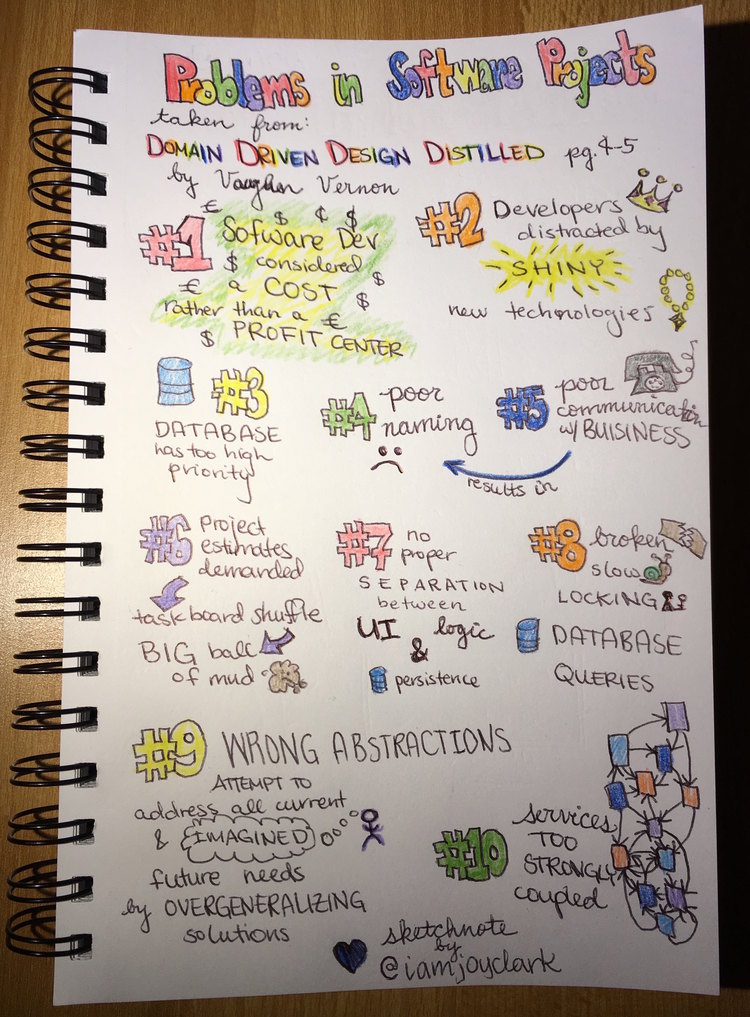 Problems in Software Projects
taken from:
DOMAIN DRIVEN DESIGN DISTILLED pg. 4-5
by Vaughn Vernon
€ $ ¢ $
#1 Sofware Dev
$ considered $
€ a COST $
rather than a €
$ PROFIT CENTER
#2 Developers
distracted by
SHINY
new technologies
#3
DATABASE
has too high
priority
#4 poor
naming
#5 poor
communication
w/ BUISINESS
results in
#6 Project
estimates
demanded
task board shuffle
BIG ball
of mud
#7 no
proper
SEPARATION
between
UI & logic
persistence
#8 broken
slow
LOCKING
DATABASE
QUERIES
#9 WRONG ABSTRACTIONS
ATTEMPT TO
address all current
& IMAGINED
future needs
by OVERGENERALIZING
solutions
#10 services
TOO
STRONGLY
coupled
sketchnote
by
@iamjoyclark